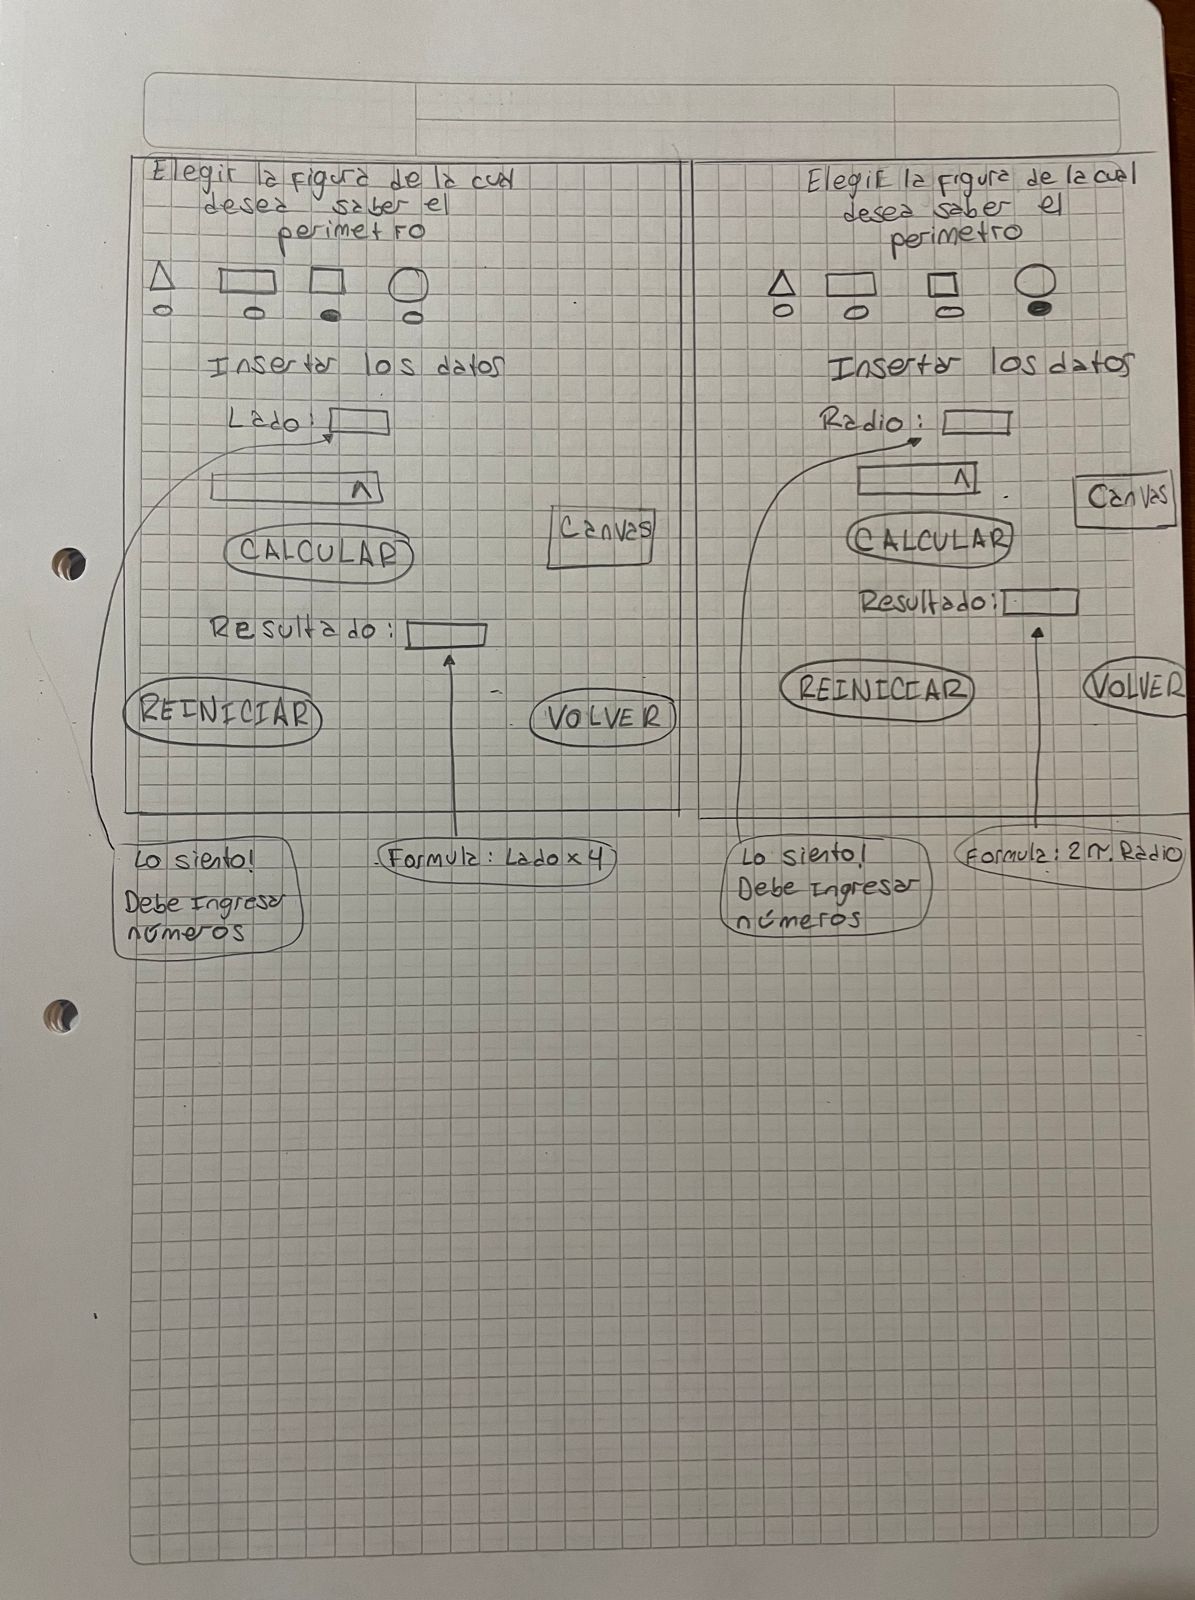 Elegir la figura de la cual
desea saber el
perimetro
Insertar los datos
Lado:
CALCULAR
Canvas
Resultado:
REINICIAR
VOLVER
Lo siento!
Debe Ingresar
números
Formula: Lado x 4
Elegir la figura de la cual
desea saber el
perimetro
Insertar los datos
Radio:
Canvas
CALCULAR
Resultado:
REINICIAR
VOLVER
Lo siento!
Debe Ingresar
números
Formula: 2 π. Radio